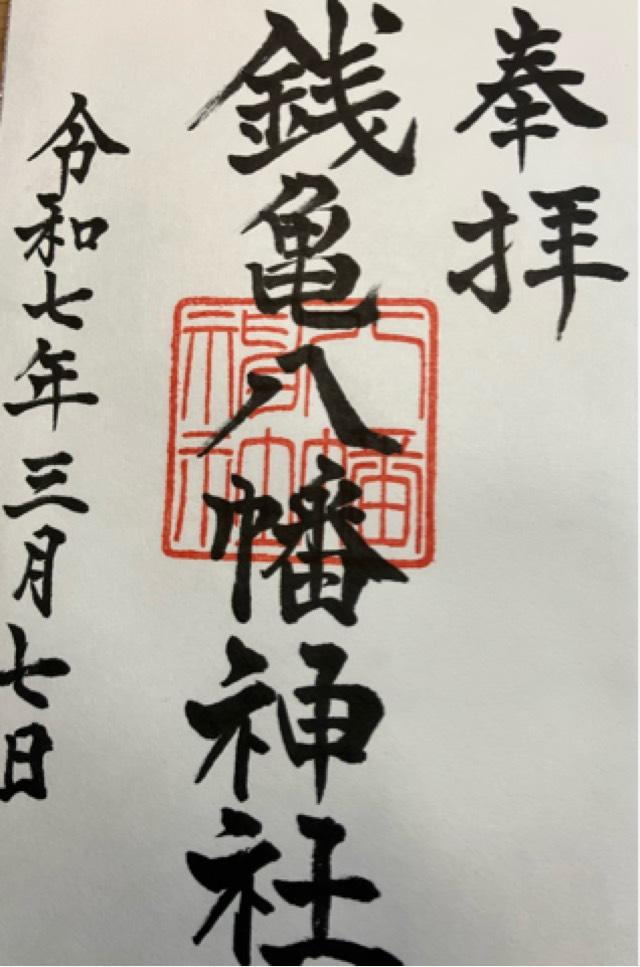 奉拝
銭亀八幡神社
八幡
神社
令和七年三月七日